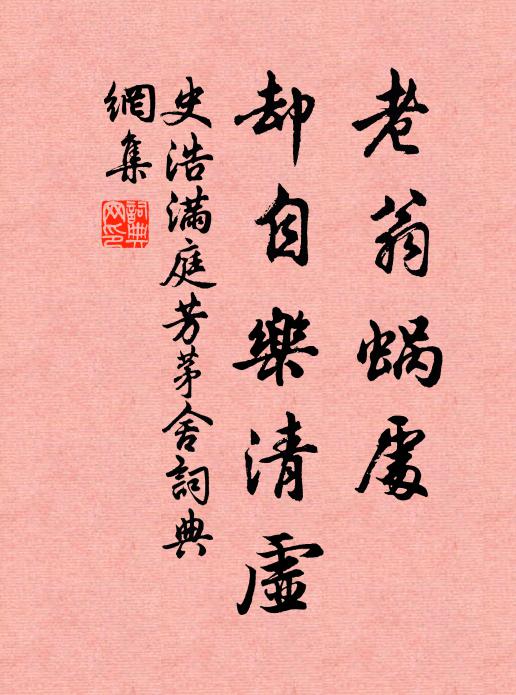 老翁蜗處
却自樂清虛
史浩滿庭芳茅舍詞典
網集
詞典網印